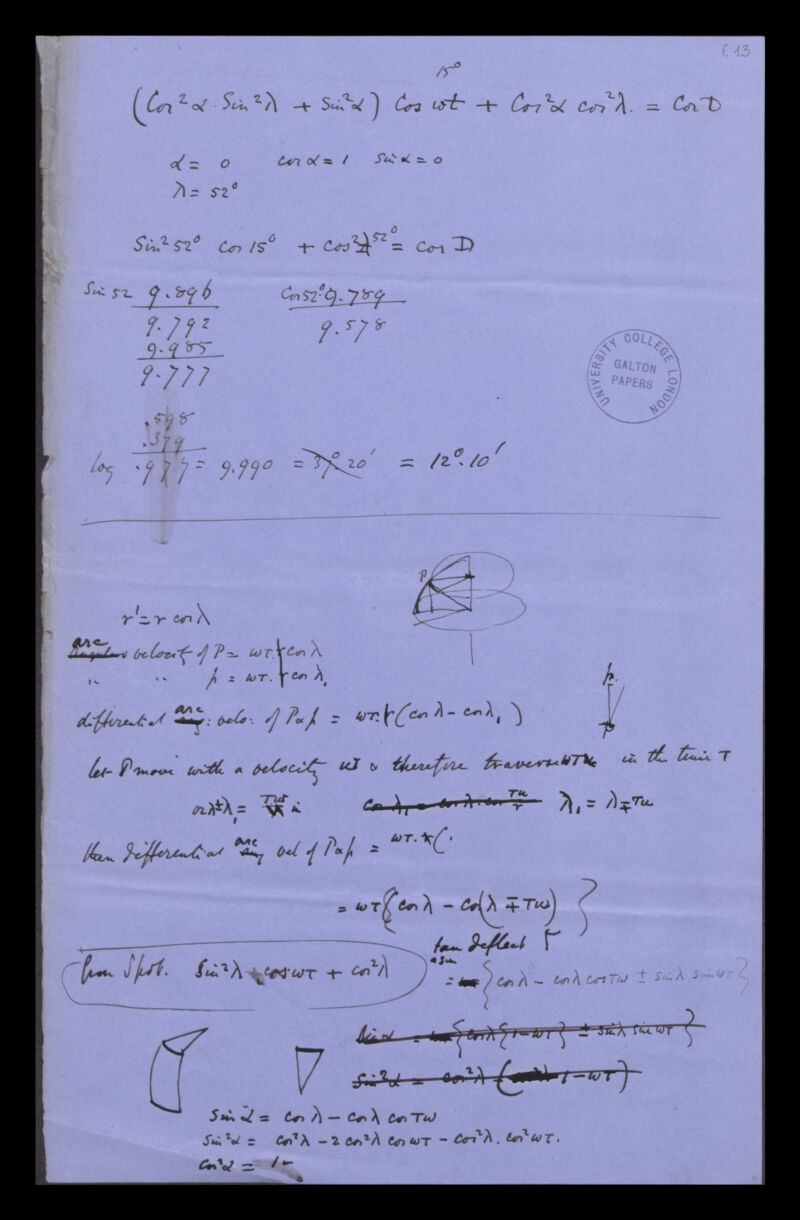 f. 13
15°
(Cos²α Sin²λ + Sin²α) Cos ωt + Cos²α cos²λ. = Cos D
α = 0 cos α = 1 Sin α = 0
λ = 52°
Sin² 52° Cos 15° + Cos² 52° = Cos D
Sin 52 9.896 Cos 52° 9.789
9.792 9.578
9.985
9.777
.598
.379
log .977 = 9.990 = 37°.20' = 12°.10'
UNIVERSITY COLLEGE LONDON
GALTON PAPERS
P
r' = r cos λ
arc
angular velocity of P = ωτ. r cos λ
" " p = ωτ. r cos λ₁
p.
differential arc velo: of P & p = ωτ. r (cos λ – cos λ₁)
let P move with a velocity & therefore traverse in the time τ
λ₁ = λ ∓ τu
then differential arc vel of P & p = ωτ. r (
= ωτ { cos λ – cos(λ ∓ τω) }
tan deflect
= { cos λ – cos λ cos τω ± sin λ sin ωτ }
from Spot. Sin²λ cos ωτ + cos²λ
Sin α = { cos λ { 1 – ωτ } ± sin λ sin ωτ }
Sin²α = cos²λ ( 1 – ωτ )
Sin α = cos λ – cos λ cos τω
Sin²α = cos²λ – 2 cos²λ cos ωτ – cos²λ. cos²ωτ.
Cos²α = 1 –